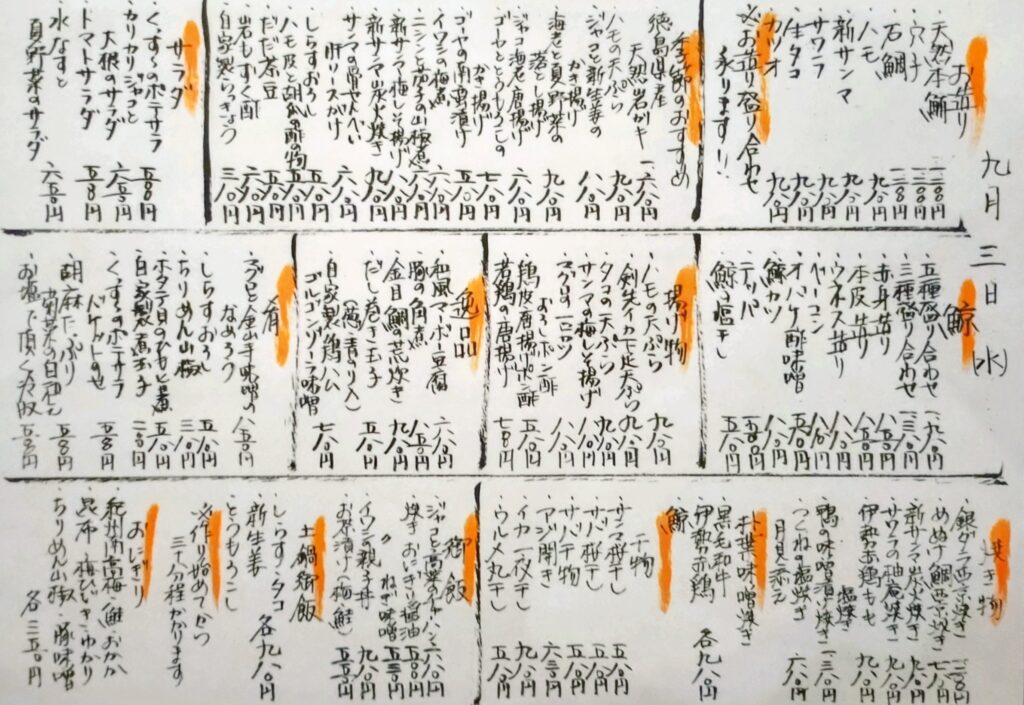 九月三日(水)
お造り
・天然本鮪 一二〇〇円
・穴子
・石鯛
・ハモ 九八〇円
・新サンマ 九八〇円
・サワラ 九八〇円
・生タコ 九八〇円
・カツオ 九八〇円
※お造り盛り合わせ
承ります!!
季節のおすすめ
・徳島県産
天然岩ガキ
・ハモの天ぷら 九八〇円
・ジャコと新生姜の
かき揚げ 八八〇円
・海老と夏野菜の
落とし揚げ 九八〇円
・ジャコ海老唐揚げ 六八〇円
・ゴーヤととうもろこしの
かき揚げ 七八〇円
・ゴーヤの南蛮漬け
・イワシの梅煮 六八〇円
・新サンマ梅しそ揚げ
・新サンマ炭火焼き 九八〇円
・サンマの骨せんべい
肝ソースがけ
・しらすおろし 五八〇円
・ハモ皮と胡瓜の酢の物
・だだ茶豆
・岩もずく酢
・自家製らっきょう 三八〇円
サラダ
・くんずのポテサラ 五八〇円
・カリカリジャコと
大根のサラダ 六五〇円
・トマトサラダ 五八〇円
・水なすと
夏野菜のサラダ 六五〇円
鯨
・五種盛り合わせ
・三種盛り合わせ
・赤身造り
・本皮造り
・ウネス造り
・ベーコン
・オバケ酢味噌
・鯨カツ 八八〇円
・テッパ
・鯨塩干し 五八〇円
揚げ物
・ハモの天ぷら 九八〇円
・剣先イカ下足天ぷら
・タコの天ぷら
・サンマの梅しそ揚げ
・マグロの一口カツ
おろしポン酢
・鶏皮唐揚げポン酢 五八〇円
・若鶏の唐揚げ 七八〇円
逸品
・和風マーボー豆腐 六八〇円
・豚の角煮 八五〇円
・金目鯛の荒炊き 九八〇円
・だし巻き玉子 五八〇円
(葱・青のり入)
・自家製鶏ハム
ゴルゴンゾーラ味噌 七八〇円
肴
・アジと金山寺味噌の
なめろう 八五〇円
・しらすおろし 五八〇円
・ちりめん山椒 三八〇円
・ホタテ貝のひもと煮
・自家製煮玉子
・くんずのポテサラ
バケットのせ 五八〇円
・胡麻たっぷり
菊菜の白和え 五八〇円
・お塩で頂く冷奴 五八〇円
焼き物
・銀ダラ西京焼き
・めぬけ鯛西京焼き
・新サンマ炭火焼き 九八〇円
・サワラの柚庵焼き 九八〇円
・伊勢赤鶏もも
塩焼き 九八〇円
・鴨の味噌漬け焼き 一三八〇円
・つくねの塩焼き
月見添え 六八〇円
朴葉味噌焼き
・黒毛和牛
・伊勢赤鶏
・鯨 各九八〇円
干物
・サンマ桜干し 五八〇円
・サバ桜干し 五八〇円
・サバ干物 五八〇円
・アジ開き 六三〇円
・イカ一夜干し
・ウルメ丸干し 五八〇円
御飯
・ジャコと高菜のチャーハン 六八〇円
・焼きおにぎり醤油
〃 ねぎ味噌
・イワシ親子丼 九八〇円
・お茶漬け(梅・鮭)
土鍋御飯
・しらす・タコ
・新生姜 各九八〇円
・とうもろこし
※作り始めてから
三十分程かかります
おにぎり
・紀州南高梅・鮭・おかか
・昆布・梅ひじき・ゆかり
・ちりめん山椒・豚味噌
各三五〇円